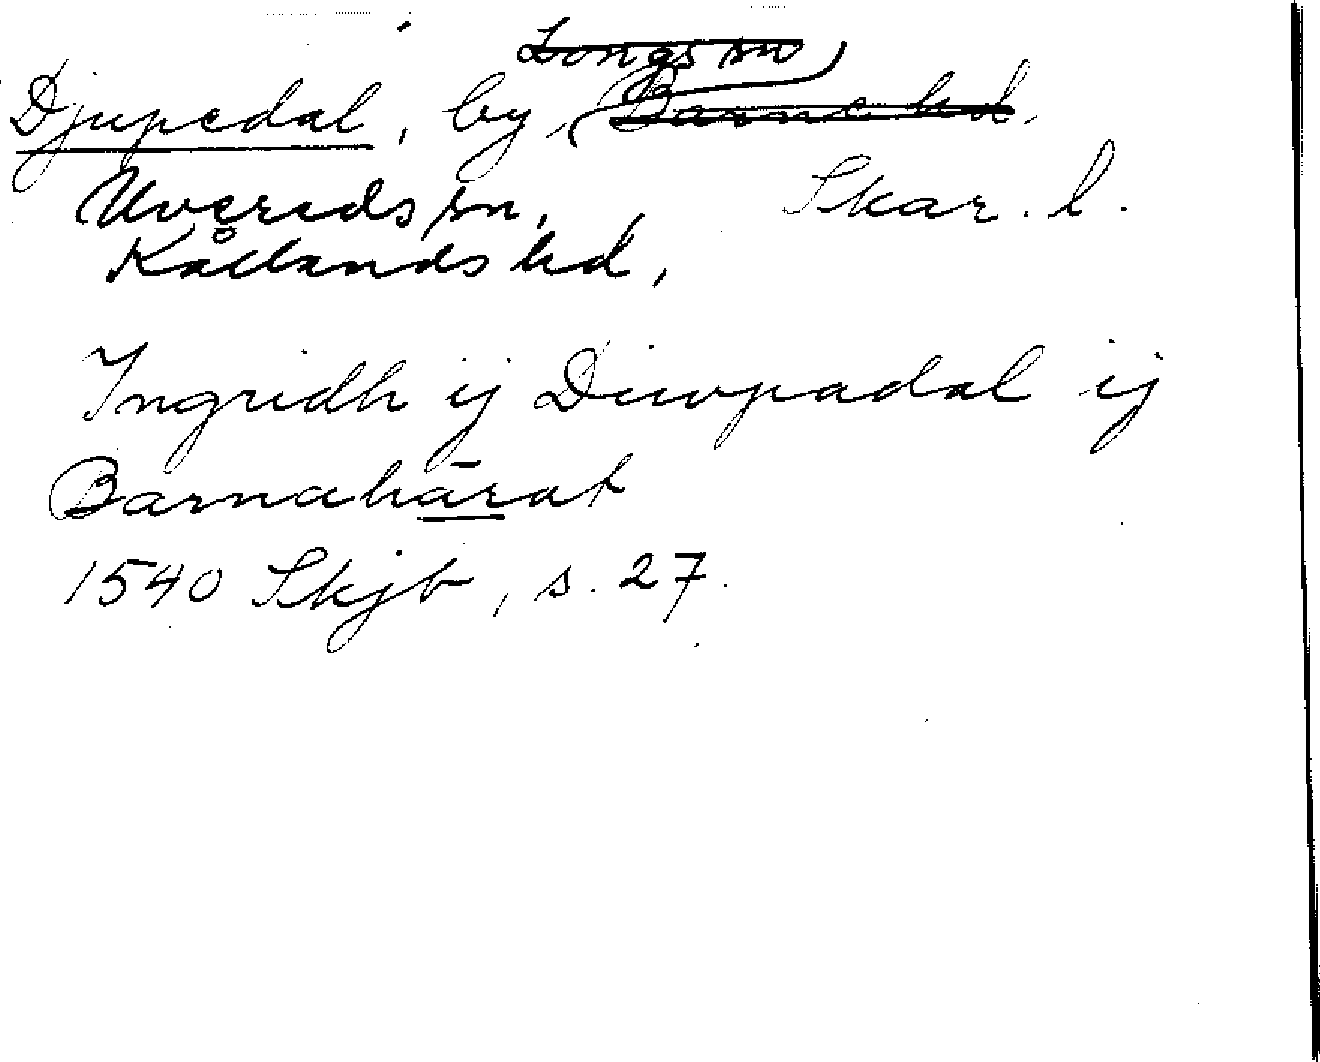 Longs sn
Djupedal, by, Barne hd.
Uvereds sn, Skar. l.
Kållands hd,
Ingridh ij Diwpadal ij
Barnahärat
1540 Skjb, s. 27.